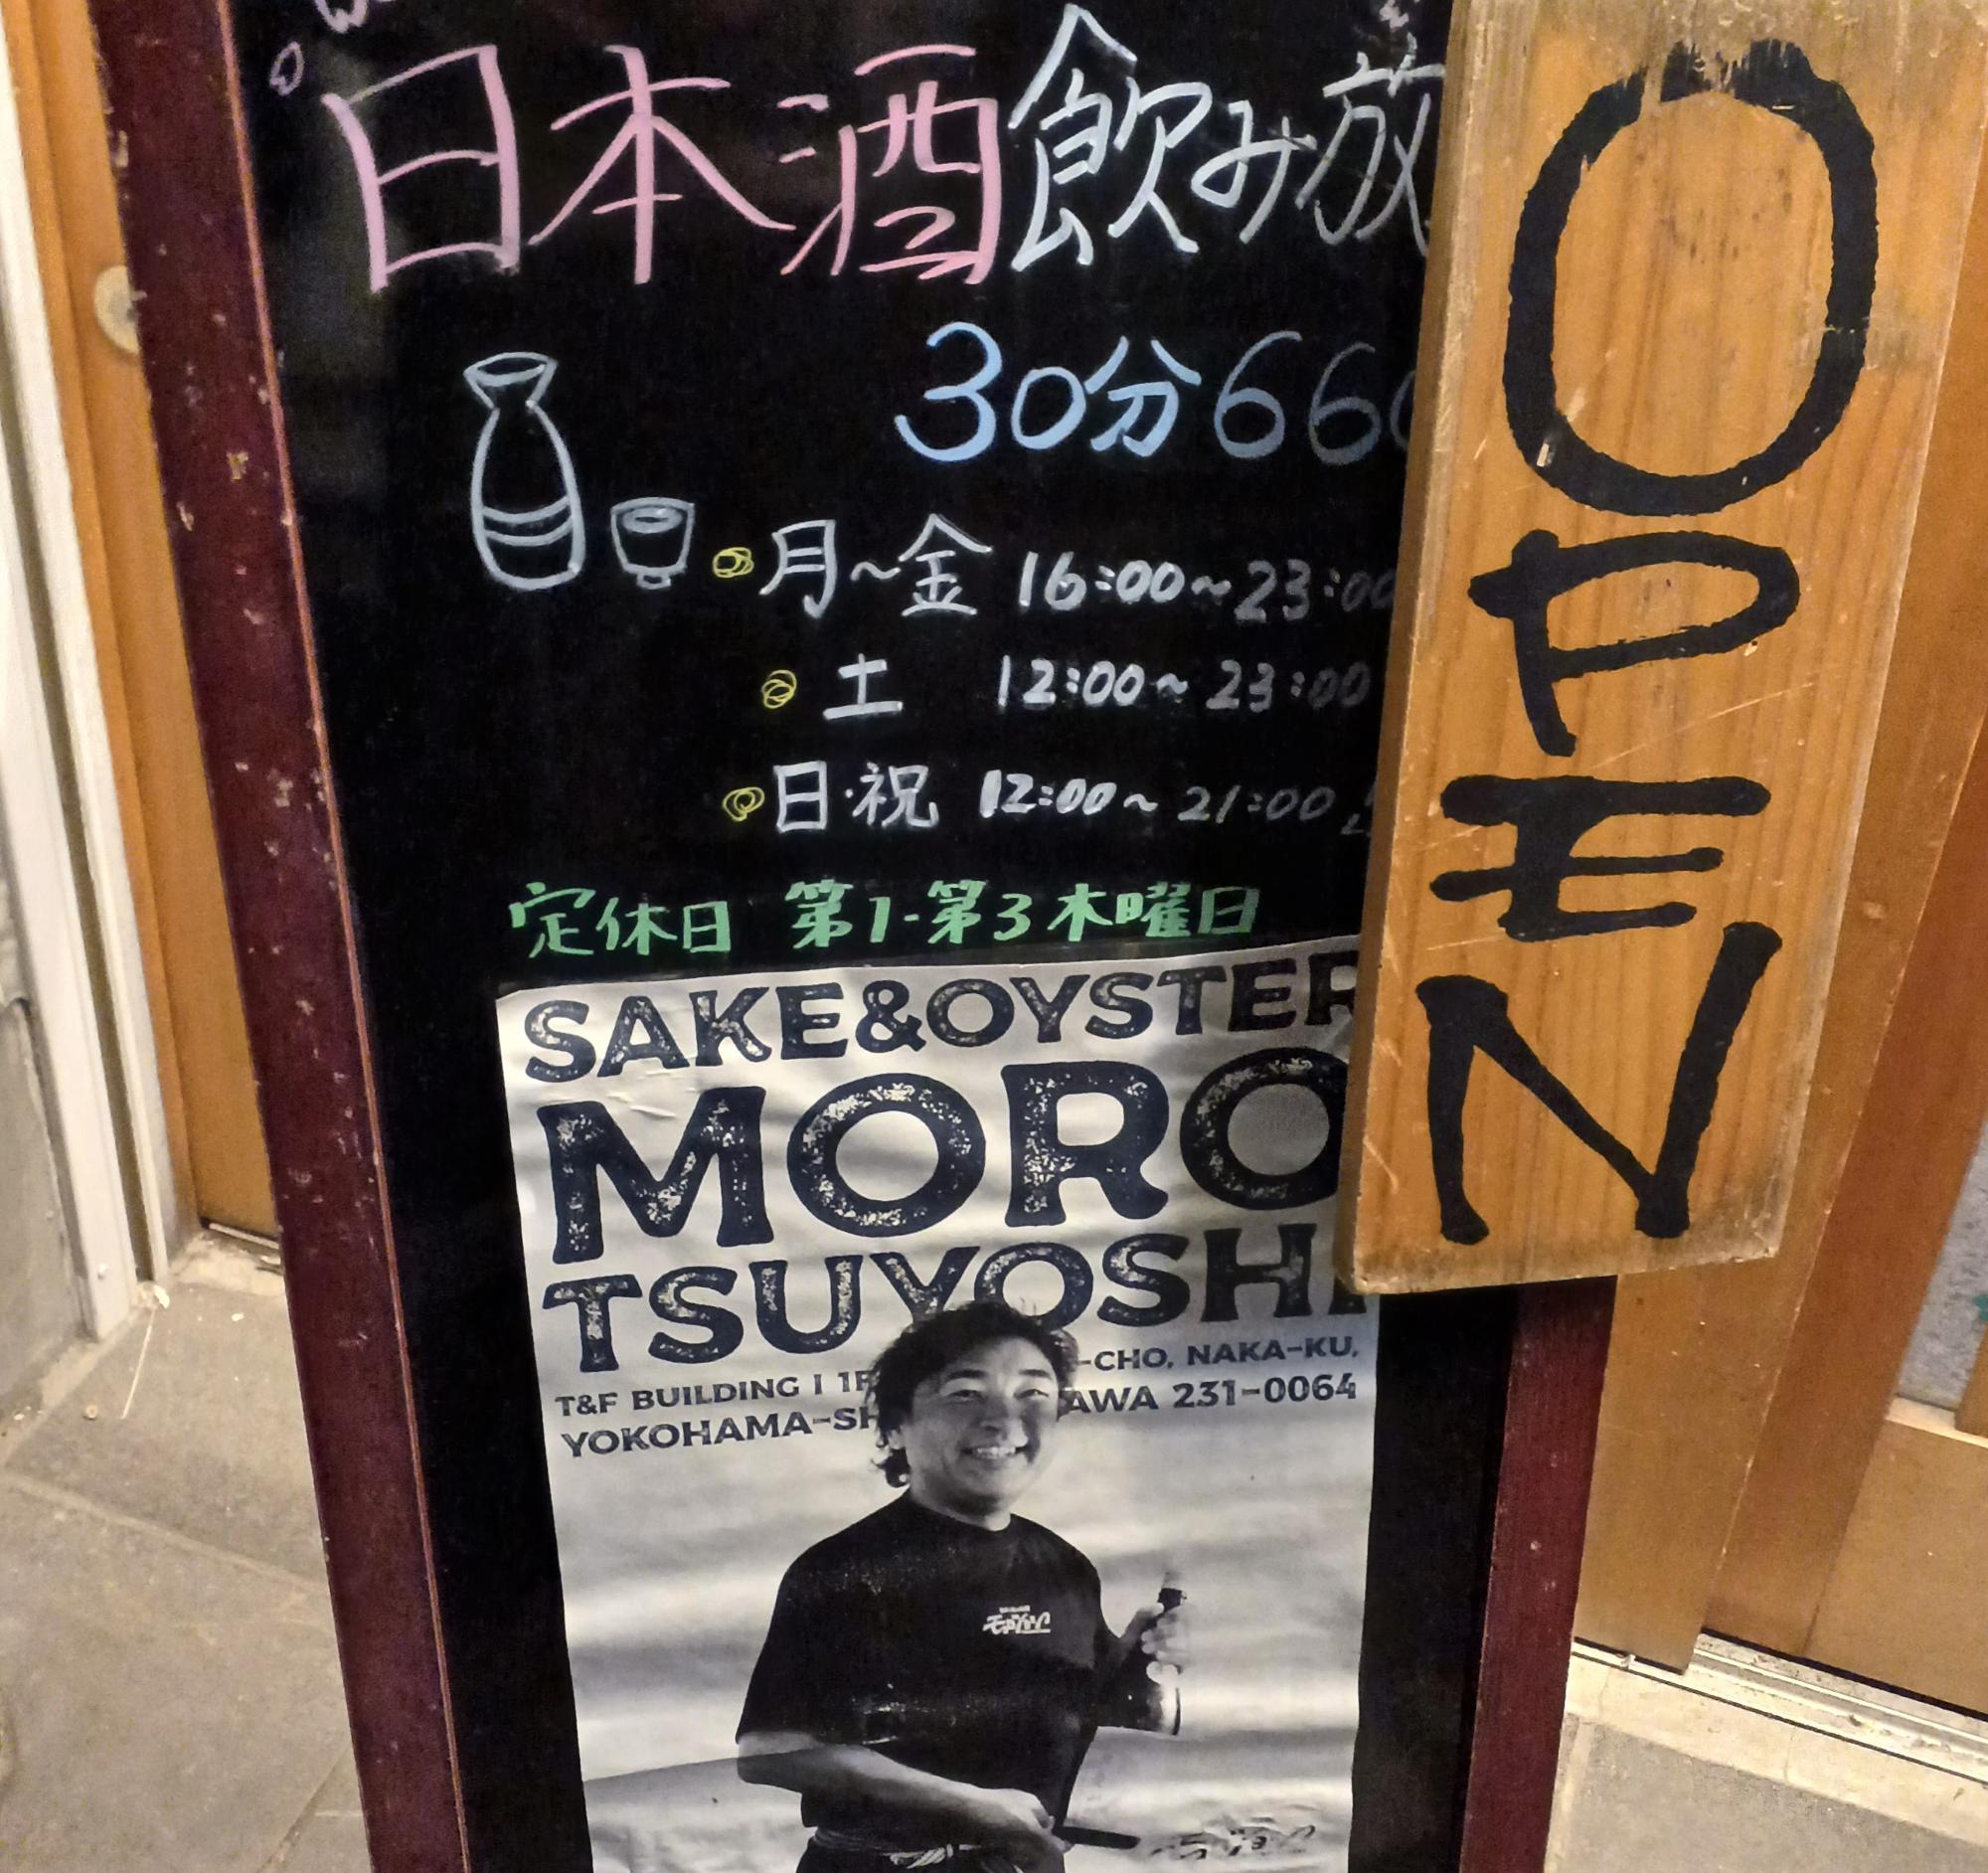 日本酒飲み放
30分660
月～金 16:00～23:00
土 12:00～23:00
日・祝 12:00～21:00
定休日 第1-第3木曜日
SAKE&OYSTER
MORO
TSUYOSHI
T&F BUILDING I 1F -CHO, NAKA-KU,
YOKOHAMA-SH AWA 231-0064
OPEN